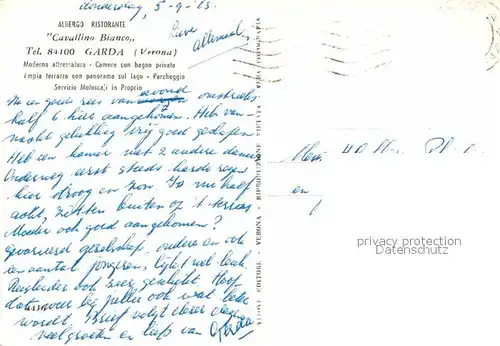 donderdag 5-9-63.
ALBERGO RISTORANTE
"Cavallino Bianco,,
Tel. 84100 GARDA (Verona)
Moderna attrezzatura - Camere con bagno privato
Ampia terrazza con panorama sul lago - Parcheggio
Servizio Motoscafi in Proprio
Lieve
Allemaal,
Na een goede reis vanavond omstreeks
half 6 hier aangekomen. Heb van-
nacht gelukkig vrij goed geslapen
Heb een kamer met 2 andere dames
Onderweg eerst steeds harde regen
hier droog en zon. Is nu half
acht, zitten buiten op 't terras
Moeder ook goed aangekomen?
gezelschap, oudere en ook
een aantal jongeren, lijkt wel leuk.
zeer geschikt. Hoop
dat weer bij jullie ook wat beter
wordt. Brief volgt
veel groeten en liefs van Gerda
VERONA - RIPRODUZIONE VIETATA - VERA FOTOGRAFIA
Mevr.
en
privacy protection
Datenschutz